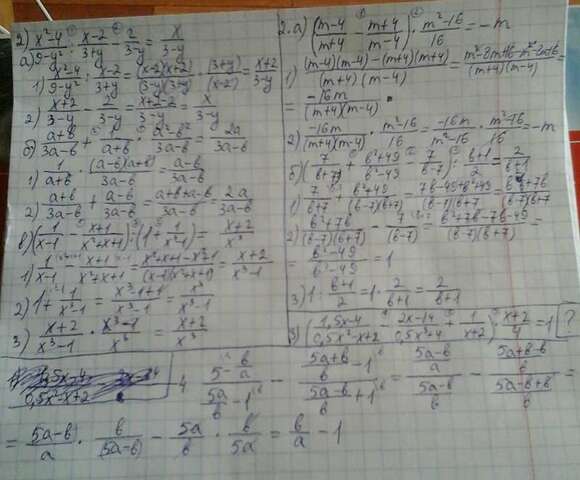 2) x²-4/9-y² : x-2/3+y - 2/3-y = x/3-y
а)
1) x²-4/9-y² : x-2/3+y = (x-2)(x+2)/(3-y)(3+y) · (3+y)/(x-2) = x+2/3-y
2) x+2/3-y - 2/3-y = x+2-2/3-y = x/3-y
б) a+b/3a-b + 1/a+b · a²-b²/3a-b = 2a/3a-b
1) 1/a+b · (a-b)(a+b)/3a-b = a-b/3a-b
2) a+b/3a-b + a-b/3a-b = a+b+a-b/3a-b = 2a/3a-b
в) (1/x-1 - x+1/x²+x+1) : (1+ 1/x³-1) = x+2/x³
1) 1/x-1 - x+1/x²+x+1 = x²+x+1-x²+1/(x-1)(x²+x+1) = x+2/x³-1
2) 1+ 1/x³-1 = x³-1+1/x³-1 = x³/x³-1
3) x+2/x³-1 · x³-1/x³ = x+2/x³
2. а) (m-4/m+4 - m+4/m-4) · m²-16/16 = -m
1) (m-4)(m-4)-(m+4)(m+4)/(m+4)(m-4) = m²-8m+16-m²-8m-16/(m+4)(m-4) =
= -16m/(m+4)(m-4)
2) -16m/(m+4)(m-4) · m²-16/16 = -16m/m²-16 · m²-16/16 = -m
б) (7/b+7 + b²+49/b²-49 - 7/b-7) : b+1/2 = 2/b+1
1) 7/b+7 + b²+49/(b-7)(b+7) = 7b-49+b²+49/(b-7)(b+7) = b²+7b/(b-7)(b+7)
2) b²+7b/(b-7)(b+7) - 7/(b-7) = b²+7b-7b-49/(b-7)(b+7) =
= b²-49/b²-49 = 1
3) 1 : b+1/2 = 1 · 2/b+1 = 2/b+1
3) (1,5x-4/0,5x²-x+2 - 2x-14/0,5x³+4 + 1/x+2) · x+2/4 = 1 ?
4 5-b/a / 5a/b-1 - 5a+b/b-1 / 5a-b/b+1 = 5a-b/a / 5a-b/b - 5a+b-b/b / 5a-b+b/b =
= 5a-b/a · b/(5a-b) - 5a/b · b/5a = b/a - 1